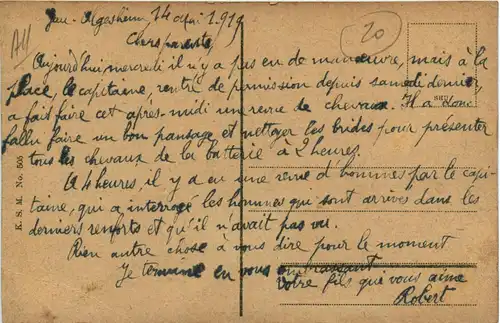 14 mai 1919
Chers parents,
Aujourd'hui mercredi il n'y a pas eu de manœuvre, mais à la
place, le capitaine, rentré de permission depuis samedi dernier,
a fait faire cet après-midi une revue de chevaux. Il a donc
fallu faire un bon pansage et nettoyer les brides pour présenter
tous les chevaux de la batterie à 2 heures.
A 4 heures, il y a eu une revue d'hommes par le capi-
taine, qui a interrogé les hommes qui sont arrivés dans les
derniers renforts et qu'il n'avait pas vu.
Rien autre chose à vous dire pour le moment
Je termine en vous embrassant
Votre fils qui vous aime
Robert
20
K. S. M. No. 505